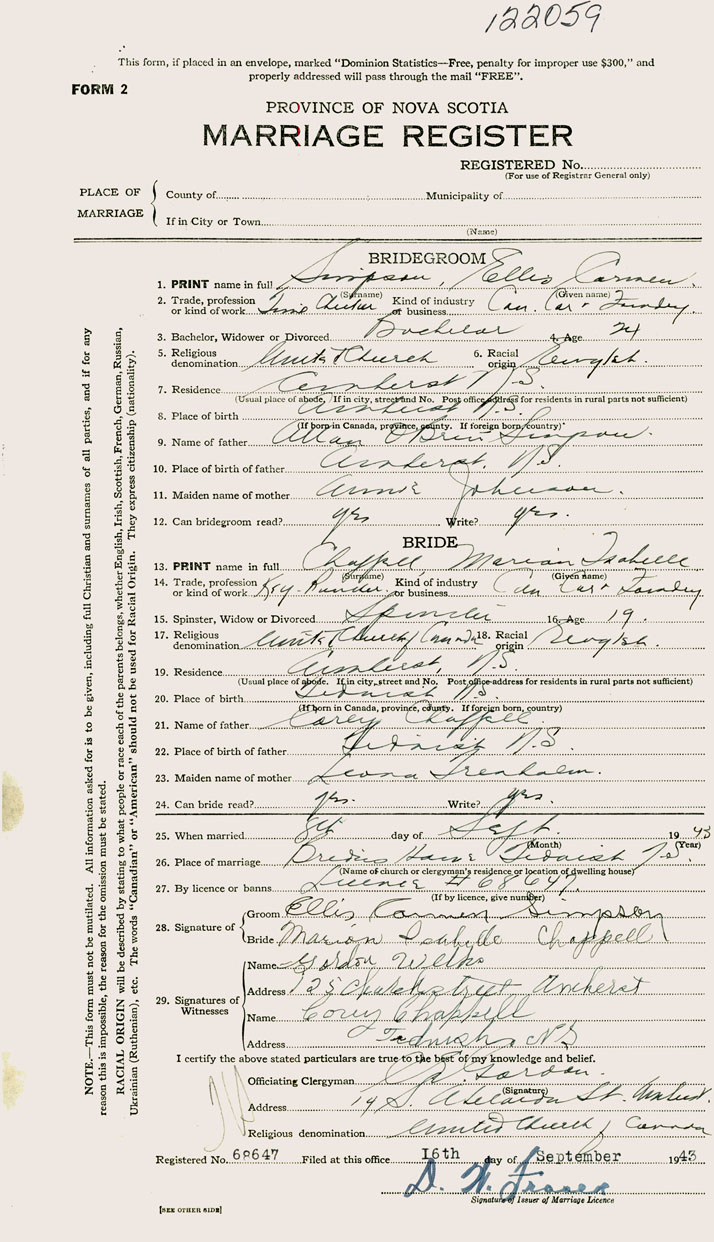 122059
This form, if placed in an envelope, marked "Dominion Statistics—Free, penalty for improper use $300," and
properly addressed will pass through the mail "FREE".
FORM 2
PROVINCE OF NOVA SCOTIA
MARRIAGE REGISTER
REGISTERED No.
(For use of Registrar General only)
PLACE OF MARRIAGE
County of Municipality of
If in City or Town
(Name)
BRIDEGROOM
1. PRINT name in full Simpson, Ellis Carmen
(Surname) (Given name)
2. Trade, profession or kind of work Time Checker Kind of industry or business Can. Car & Foundry
3. Bachelor, Widower or Divorced Bachelor 4. Age 24
5. Religious denomination United Church 6. Racial origin English.
7. Residence Amherst N.S.
(Usual place of abode. If in city, street and No. Post office address for residents in rural parts not sufficient)
8. Place of birth Amherst N.S.
(If born in Canada, province, county. If foreign born, country)
9. Name of father Allan O'Brien Simpson.
10. Place of birth of father Amherst, N.S.
11. Maiden name of mother Annie Johnson.
12. Can bridegroom read? yes Write? yes.
BRIDE
13. PRINT name in full Chappell Marion Isabelle
(Surname) (Given name)
14. Trade, profession or kind of work Key-Puncher Kind of industry or business Can Car & Foundry
15. Spinster, Widow or Divorced Spinster 16. Age 19.
17. Religious denomination United Church of Canada 18. Racial origin English.
19. Residence Amherst, N.S.
(Usual place of abode. If in city, street and No. Post office address for residents in rural parts not sufficient)
20. Place of birth Tidnish N.S.
(If born in Canada, province, county. If foreign born, country)
21. Name of father Corey Chappell.
22. Place of birth of father Tidnish N.S.
23. Maiden name of mother Leona Trenholm.
24. Can bride read? yes. Write? yes.
25. When married 8th day of Sept. 1943
(Month) (Year)
26. Place of marriage Brides Home Tidnish N.S.
(Name of church or clergyman's residence or location of dwelling house)
27. By licence or banns Licence # 68647.
(If by licence, give number)
28. Signature of
Groom Ellis Carmen Simpson
Bride Marion Isabelle Chappell
29. Signatures of Witnesses
Name Gordon Wells
Address 125 Church street Amherst
Name Corey Chappell
Address Tidnish NS
I certify the above stated particulars are true to the best of my knowledge and belief.
Officiating Clergyman Gordon.
(Signature)
Address 19 S. Adelaide St. Amherst.
Religious denomination United Church of Canada
Registered No. 68647 Filed at this office 16th day of September 1943
D. W. Fraser
Signature of Issuer of Marriage Licence
[SEE OTHER SIDE]
NOTE.—This form must not be mutilated. All information asked for is to be given, including full Christian and surnames of all parties, and if for any
reason this is impossible, the reason for the omission must be stated.
RACIAL ORIGIN will be described by stating to what people or race each of the parents belongs, whether English, Irish, Scottish, French, German, Russian,
Ukrainian (Ruthenian), etc. The words "Canadian" or "American" should not be used for Racial Origin. They express citizenship (nationality).